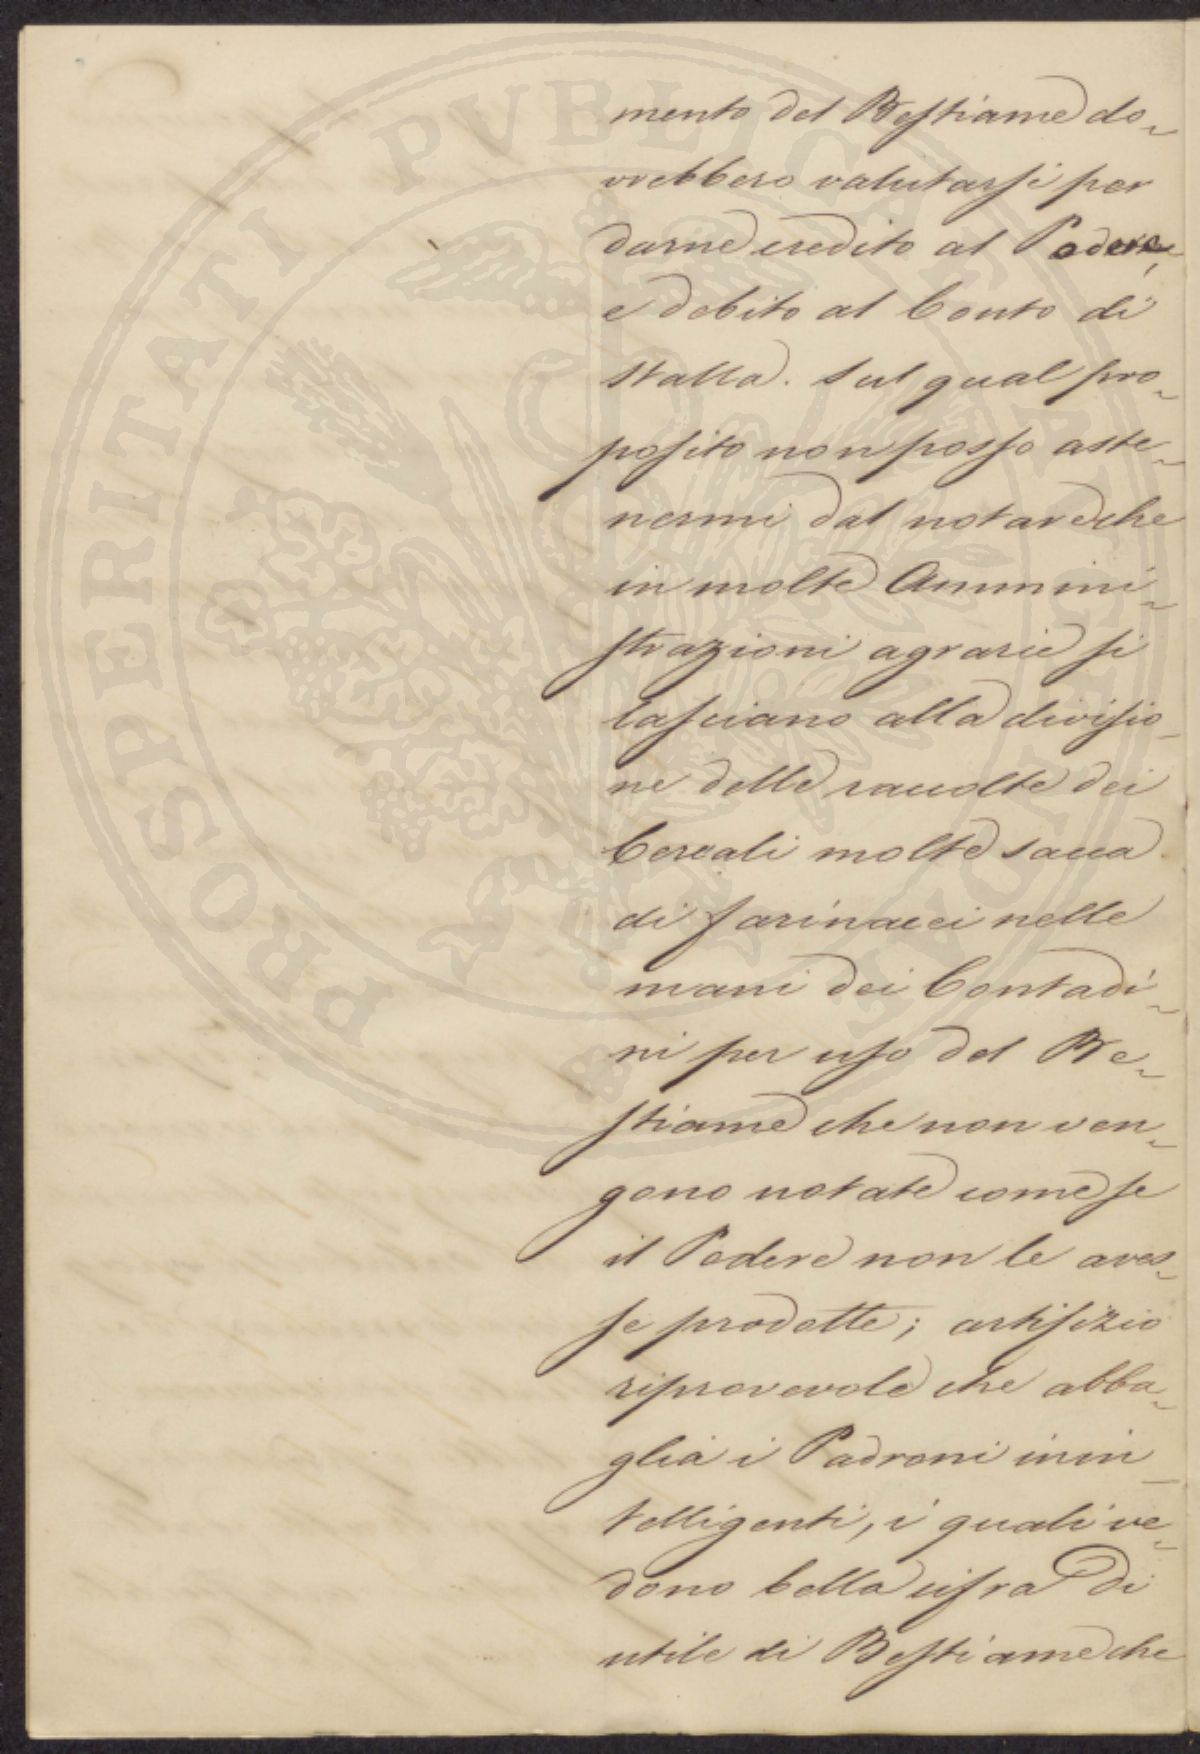 mento del Bestiame do-
vrebbero valutarsi per
darne credito al Podere,
e debito al Conto di
stalla. Sul qual pro-
posito non posso aste-
nermi dal notare che
in molte Ammini-
strazioni agrarie si
lasciano alla divisio-
ne delle raccolte dei
Cereali molte sacca
di farinacei nelle
mani dei Contadi-
ni per uso del Be-
stiame che non ven-
gono notate come se
il Podere non le aves-
se prodotte; artifizio
riprovevole che abba-
glia i Padroni inin-
telligenti, i quali ve-
dono bella cifra di
utile di Bestiame che
PROSPERITATI PVBLICAE AVGENDAE